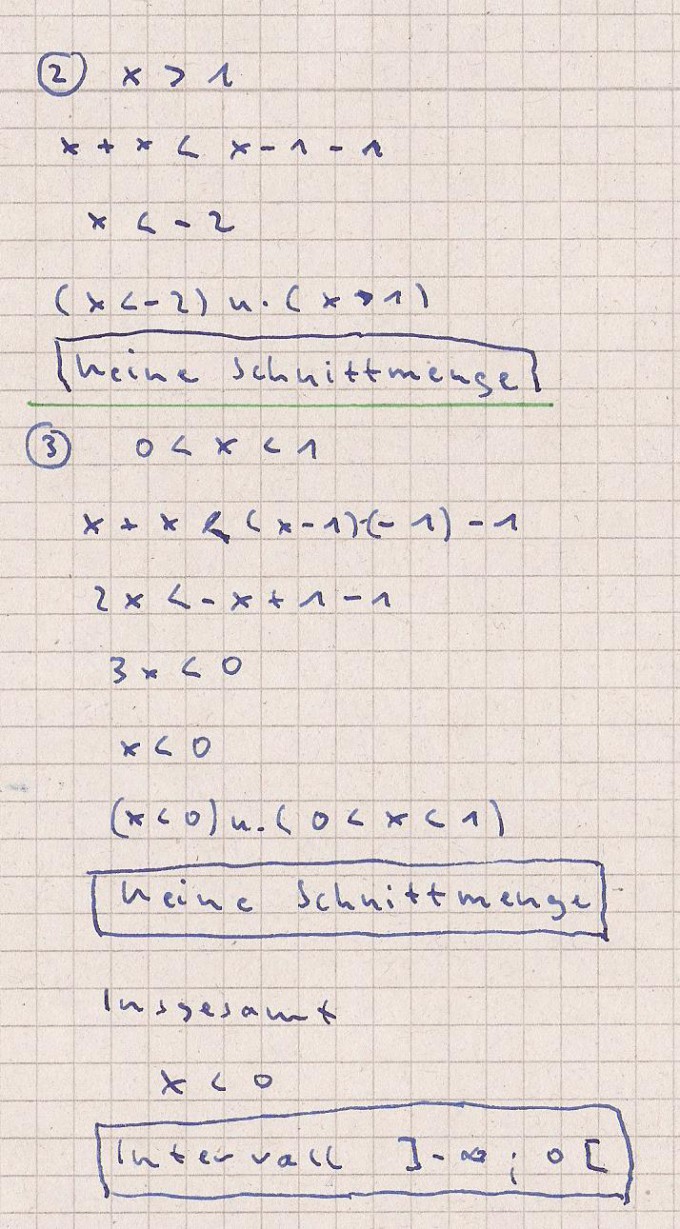 ② x > 1
x + x < x - 1 - 1
x < - 2
(x < - 2) u. (x > 1)
keine Schnittmenge
③ 0 < x < 1
x + x < (x - 1)·(- 1) - 1
2x < - x + 1 - 1
3x < 0
x < 0
(x < 0) u. (0 < x < 1)
keine Schnittmenge
Insgesamt
x < 0
Intervall ]- ∞ ; 0 [